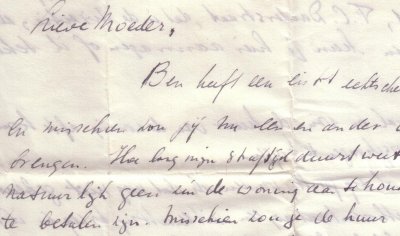 Lieve Moeder,
Ben heeft een eis tot echtsche
En misschien zou jij nu een en ander
brengen. Hoe lang mijn straftijd duurt weet
natuurlijk geen de woning aan te hou
te betalen zijn. Misschien zou je de huur